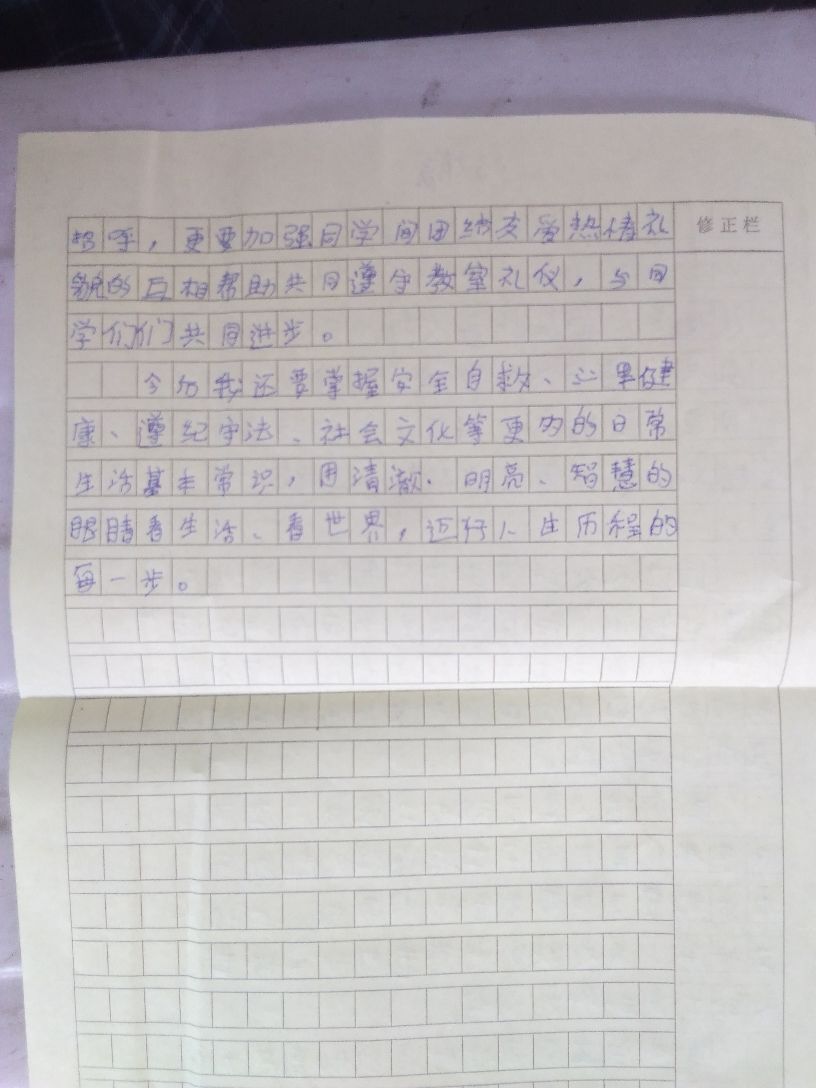 招呼，更要加强同学间团结友爱热情礼
貌的互相帮助共同遵守教室礼仪，与同
学们们共同进步。
今后我还要掌握安全自救、心里健
康、遵纪守法、社会文化等更内的日常
生活基本常识，用清澈、明亮、智慧的
眼睛看生活、看世界，迈好人生历程的
每一步。
修正栏